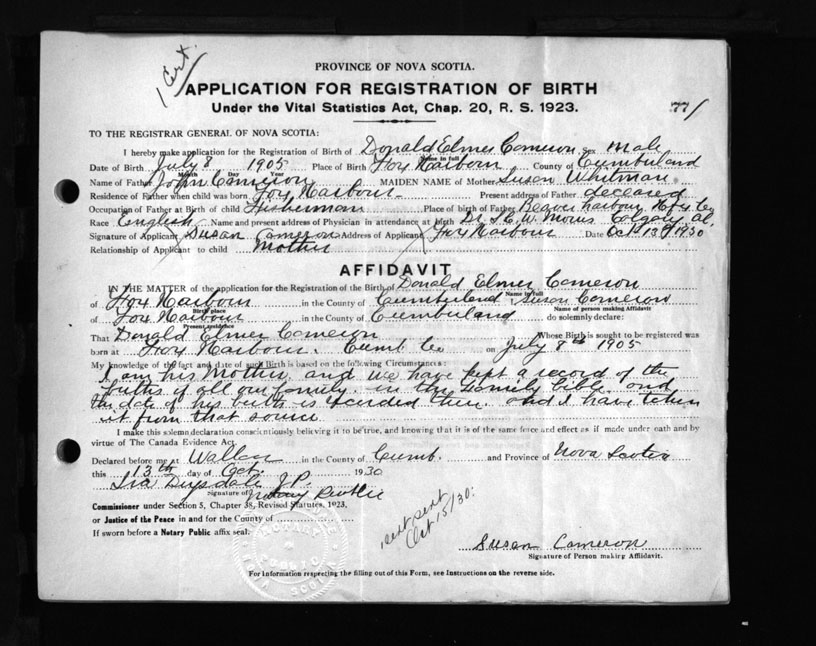 1 Cert.
PROVINCE OF NOVA SCOTIA.
APPLICATION FOR REGISTRATION OF BIRTH
Under the Vital Statistics Act, Chap. 20, R. S. 1923.
771
TO THE REGISTRAR GENERAL OF NOVA SCOTIA:
I hereby make application for the Registration of Birth of Donald Elmer Cameron sex Male
Name in full
Date of Birth July 8 1905 Place of Birth Fox Harbour County of Cumberland
Month Day Year
Name of Father John Cameron MAIDEN NAME of Mother Susan Whitman
Residence of Father when child was born Fox Harbour Present address of Father deceased
Occupation of Father at Birth of child Fisherman Place of birth of Father Beaver Harbour Hfx Co
Race English Name and present address of Physician in attendance at birth Dr Morris Calgary Al.
Signature of Applicant Susan Cameron Address of Applicant Fox Harbour Date Oct 13 1930
Relationship of Applicant to child Mother
AFFIDAVIT
IN THE MATTER of the application for the Registration of the Birth of Donald Elmer Cameron
Name in full
of Fox Harbour in the County of Cumberland I, Susan Cameron
Birth place Name of person making Affidavit
of Fox Harbour in the County of Cumberland do solemnly declare:
Present residence
That Donald Elmer Cameron Whose Birth is sought to be registered was
born at Fox Harbour. Cumb Co on July 8th 1905
My knowledge of the fact and date of such Birth is based on the following Circumstances:
I am his Mother and we have kept a record of the
births of all our family in the family bible. and
the date of his birth is recorded there. and I have taken
it from that source
I make this solemn declaration conscientiously believing it to be true, and knowing that it is of the same force and effect as if made under oath and by
virtue of The Canada Evidence Act.
Declared before me at Wallace in the County of Cumb. and Province of Nova Scotia
this 13th day of Oct. 1930
Ira Drysdale J.P.
Signature of Notary Public
Commissioner under Section 5, Chapter 38, Revised Statutes, 1923,
or Justice of the Peace in and for the County of
If sworn before a Notary Public affix seal.
1 cert sent
Oct 15/30:
Susan Cameron
Signature of Person making Affidavit.
For information respecting the filling out of this Form, see Instructions on the reverse side.